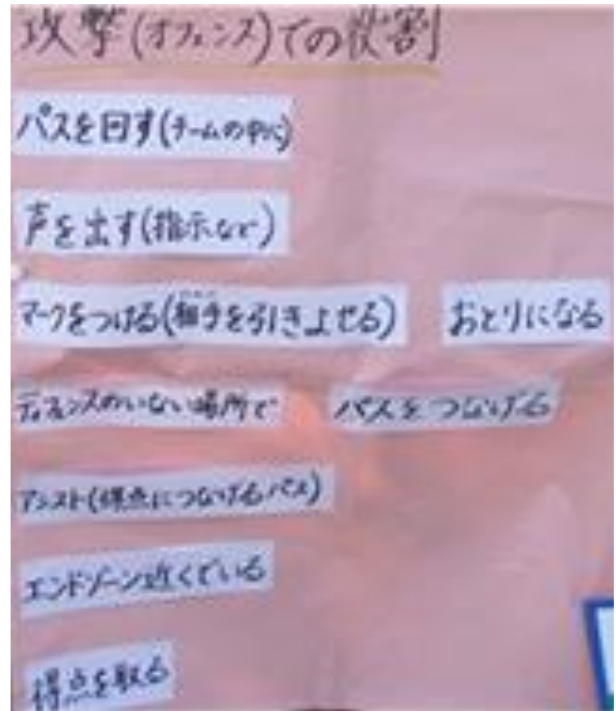 攻撃(オフェンス)での役割
パスを回す(チームの中に)
声を出す(指示など)
マークをつける(相手を引きよせる) おとりになる
ディフェンスのいない場所で パスをつなげる
アシスト(得点につなげるパス)
エンドゾーン近くでいる
得点を取る